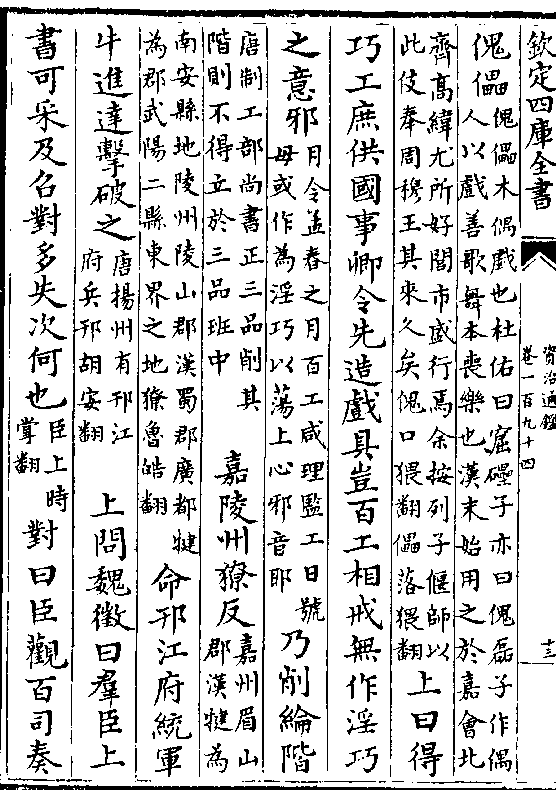 欽定四庫全書
資治通鑑
卷一百九十四
十三
傀儡傀儡木偶戲也杜佑曰窟礧子亦曰傀磊子作偶
人以戲善歌舞本喪樂也漢末始用之於嘉會北
齊髙緯尤所好閭市盛行焉余按列子偃師以
此伎奉周穆王其來久矣傀口猥翻儡落猥翻上曰得
巧工庶供國事卿令先造戲具豈百工相戒無作淫巧
之意邪月令孟春之月百工咸理監工日號
毋或作為淫巧以蕩上心邪音耶乃削綸階
唐制工部尚書正三品削其
階則不得立於三品班中嘉陵州獠反嘉州眉山
郡漢犍為
南安縣地陵州陵山郡漢蜀郡廣都犍
為郡武陽二縣東界之地獠魯皓翻命邗江府統軍
牛進達擊破之唐揚州有邗江
府兵邗胡安翻上問魏徵曰羣臣上
書可采及召對多失次何也臣上時
掌翻對曰臣觀百司奏